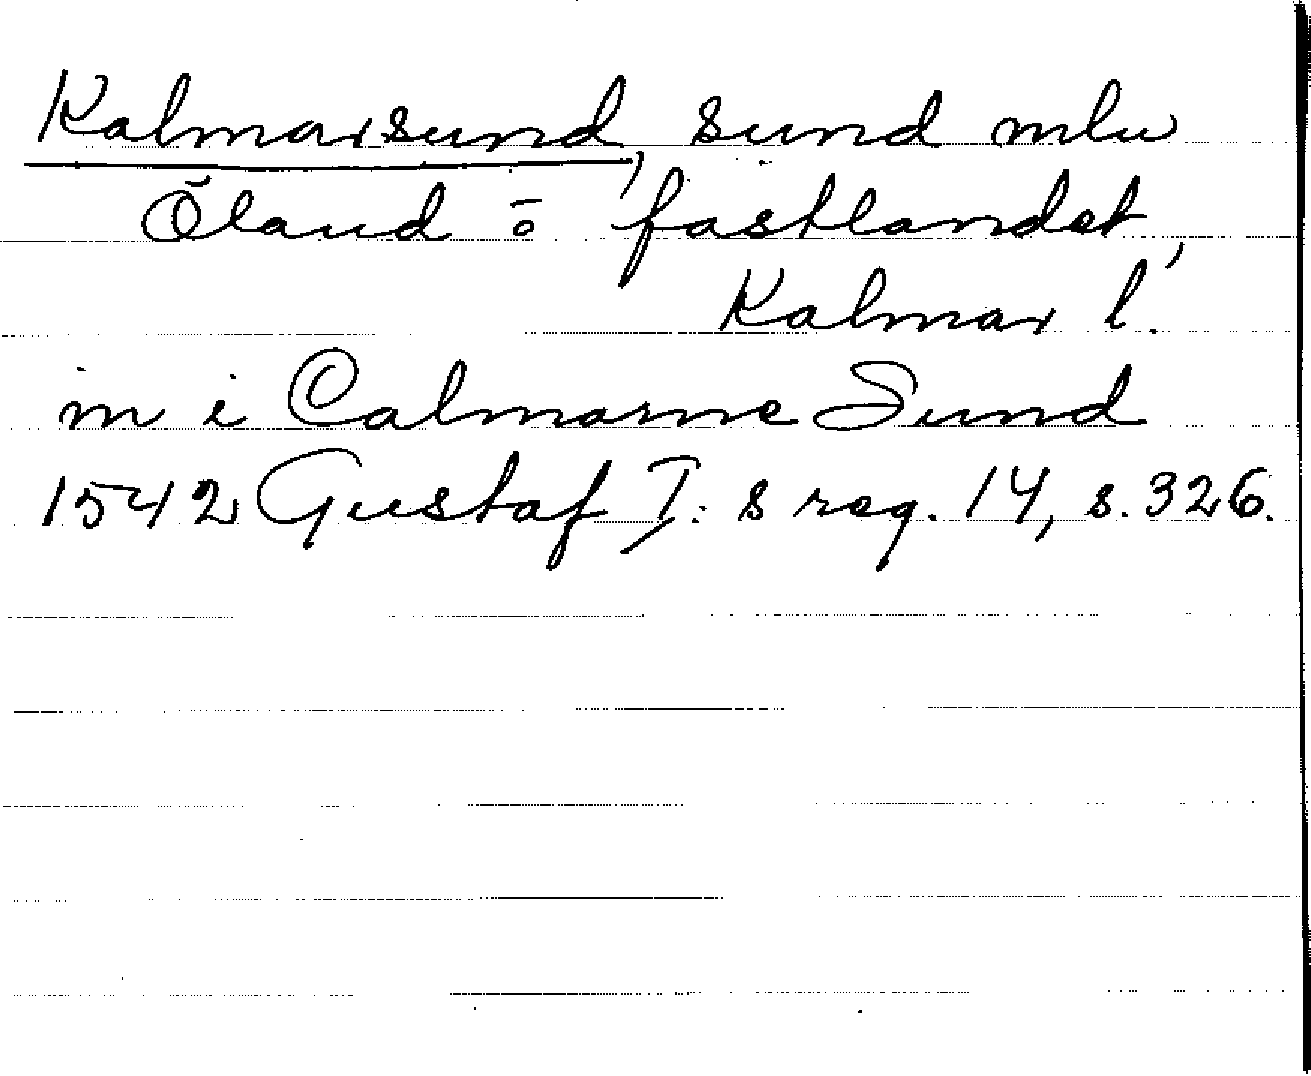 Kalmarsund, sund mlu
Öland ō fastlandet,
Kalmar l.
in i Calmarne Sund
1542 Gustaf I:s reg. 14, s. 326.